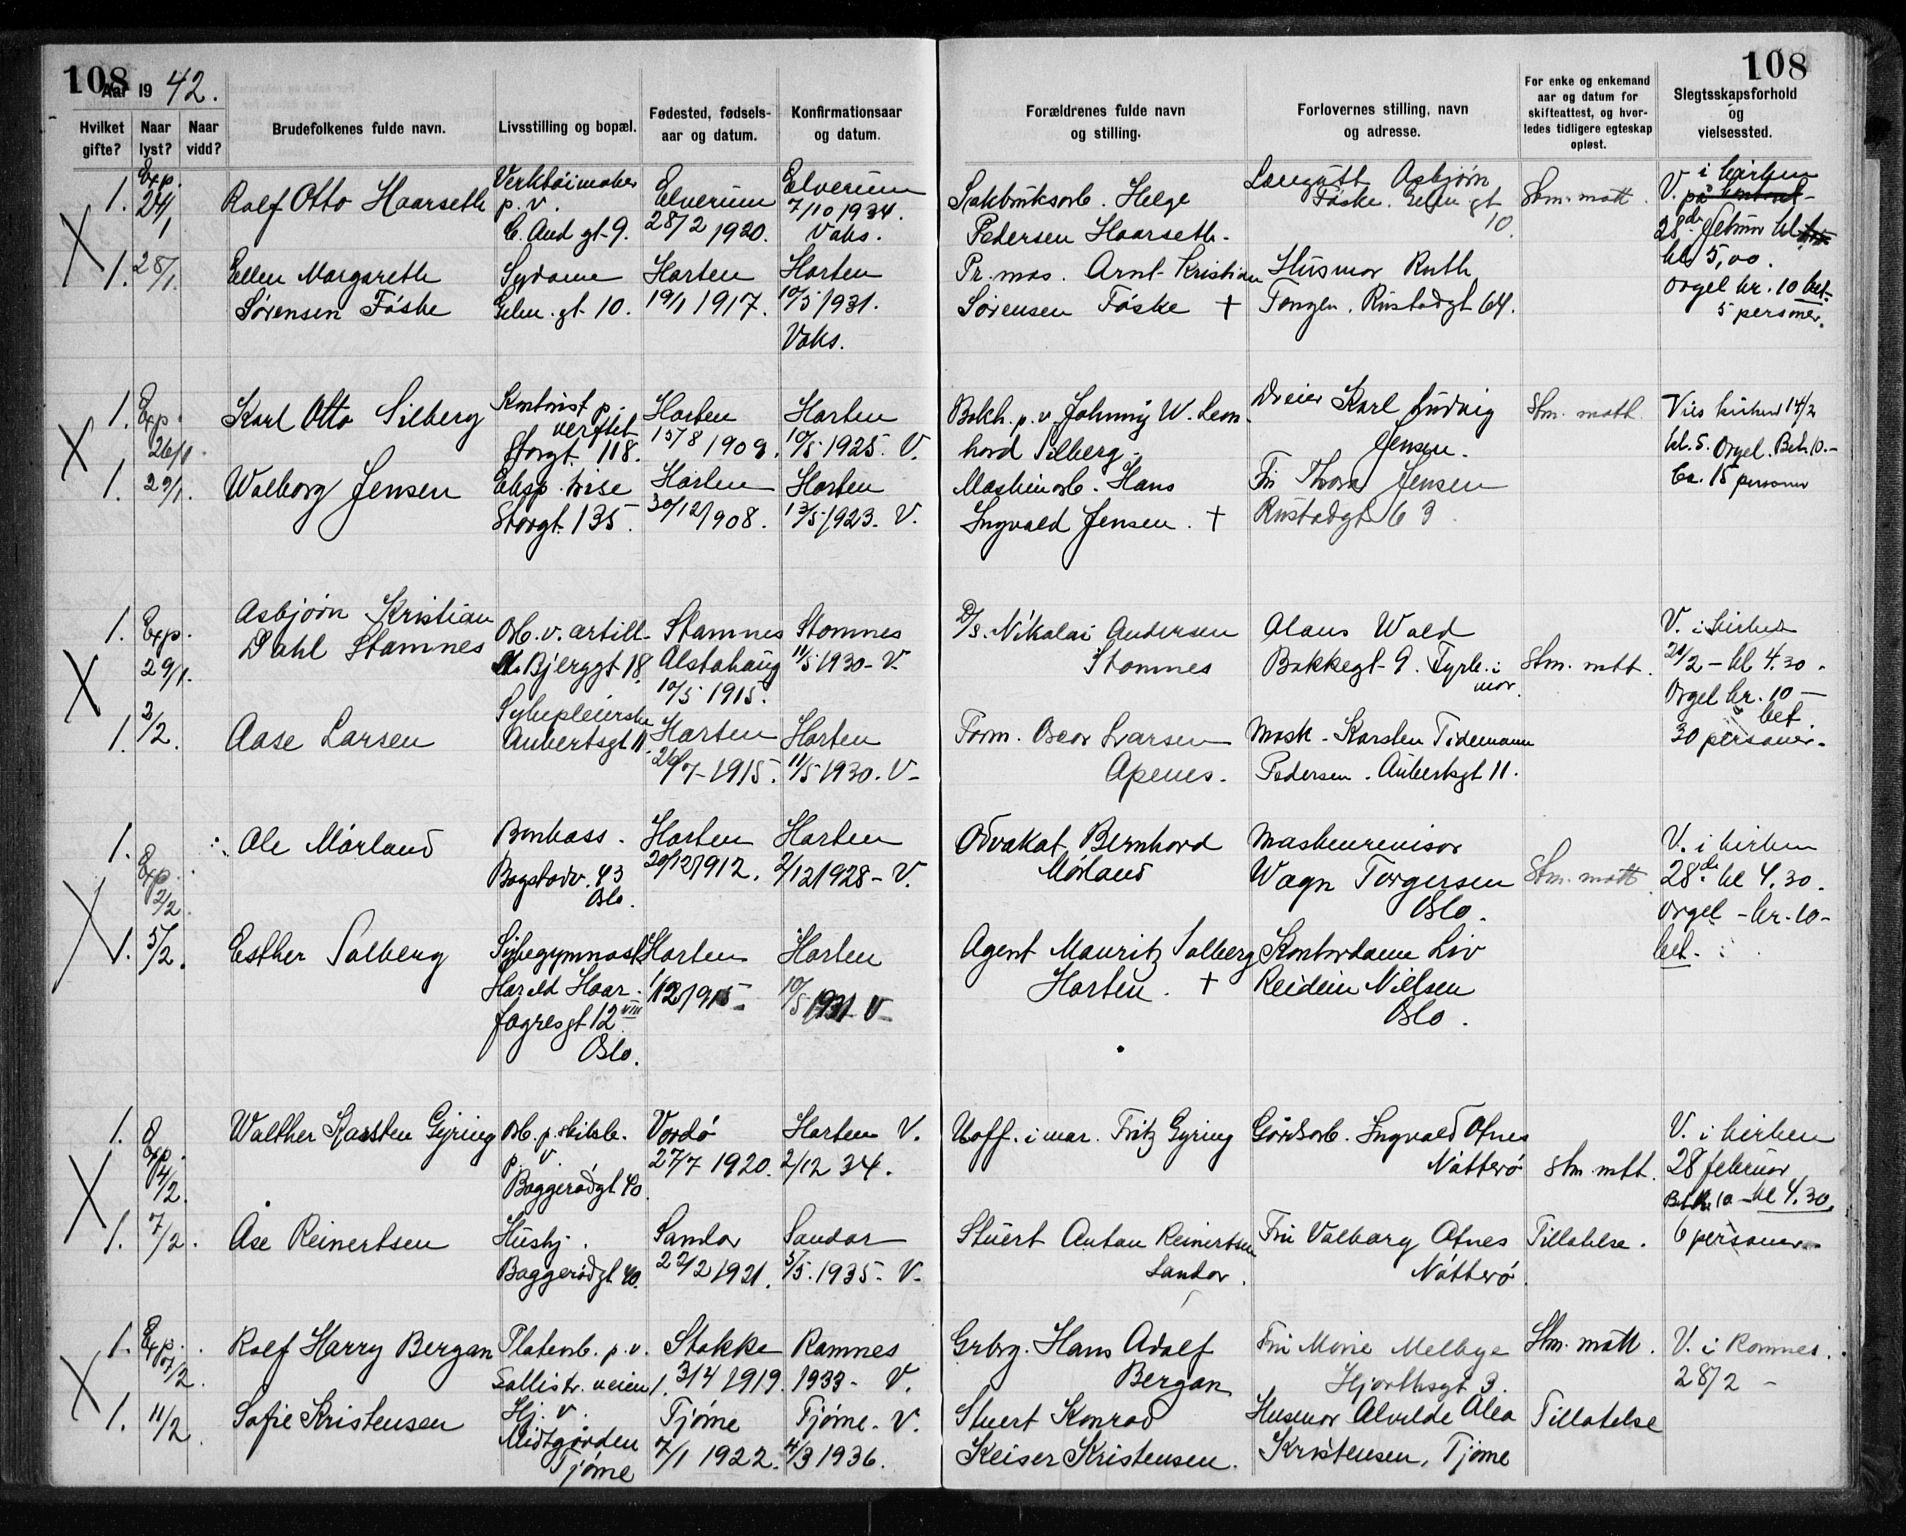 108
Aar 19 42.
Hvilket gifte?
Naar lyst?
Naar vidd?
Brudefolkenes fulde navn.
Livsstilling og bopæl.
Fødested, fødsels-
aar og datum.
Konfirmationsaar
og datum.
108
Forældrenes fulde navn
og stilling.
Forlovernes stilling, navn
og adresse.
For enke og enkemand
aar og datum for
skifteattest, og hvor-
ledes tidligere egteskap
opløst.
Slegtsskapsforhold
og
vielsessted.
1. Exp. 24/1
Rolf Otto Haarseth
Verktøimaker
p. v.
C. And gt. 9.
Elverum
28/2 1920.
Elverum
7/10 1934.
Vaks.
Helge
Pedersen Haarseth.
Asbjørn
Føske. gt
10.
Stm. matt.
V. i kirken
28de februar kl
kl. 5,00.
Orgel kr. 10 bet.
5 personer.
1. 28/1.
Ellen Margareth
Sørensen Føske
Sydame
gt. 10.
Horten
19/1 1917.
Horten
10/5 1931.
Vaks.
Pr. mas. Arnt Kristian
Sørensen Føske +
Husmor Ruth
Tangen. Rustadgt 64.
1. Exp. 26/1.
Karl Otto Silberg
Kontorist p.
verftet
Storgt. 118.
Horten
15/8 1909.
Horten
10/5 1925. V.
Bokh. p. v. Johnny W. Leon-
hard Silberg.
Dreier Karl Ludvig
Jensen.
Stm. matt
kirken 14/2
kl. 5. Orgel. Bet. 10.-
Ca. 15 personer
1. 29/1.
Walborg Jensen
Eksp. trise
Storgt. 135.
Horten
30/12 1908.
Horten
13/5 1923. V.
Maskinarb. Hans
Ingvald Jensen. +
Fru Thora Jensen
Rustadgt 63
1. Exp. 29/1.
Asbjørn Kristian
Dahl Stamnes
Arb. v. artill.
Bjerggt 18.
Stamnes
Alstahaug
10/5 1915.
Stamnes
11/5 1930 - V.
Nikolai Andersen
Stamnes
Olaus Wold
Bakkegt 9. Fyrb. i
mar.
Stm. matt.
V. i kirken
21/2 - kl 4.30.
Orgel kr. 10 -
bet.
30 personer.
1. 2/2.
Aase Larsen
Sykepleierske
Aubertsgt 11.
Horten
26/7 - 1915.
Horten
11/5 1930. V-
Form. Oscar Larsen
Apenes.
Mask. Karsten Tidemann
Pedersen. Aubertsgt 11.
1. Exp. 2/2.
Ole Mørland
Bankass.
Bogstadv. 43
Oslo.
Horten
20/12 1912.
Horten
2/12 1928 - V.
Advokat Bernhard
Mørland
Maskinrevisor
Wagn Torgersen
Oslo.
Stm. matt
V. i kirken
28de kl 4.30.
Orgel - kr. 10 -
bet.
1. 5/2.
Esther Solberg
Sykegymnast
Harald Haar-
fagresgt 12 VIII
Oslo.
Horten
1/12 1915.
Horten
10/5 1931 V-
Agent Mauritz Solberg
Horten. +
Kontordame Liv
Reidun Nilsen
Oslo.
1. Exp. 4/2.
Walther Karsten Gyring
Arb. p. skibsb.
p. v.
Baggerødgt 40.
Vardø
27/7 1920.
Horten V.
2/12 34.
Uoff. i mar. Fritz Gyring
Gårdsarb. Ingvald Ofnes
Nøtterø
Stm. matt.
V. i kirken
28 februar
kl 4.30.
6 personer.
1. 7/2.
Åse Reinertsen
Hushj.
Baggerødgt 40.
Sandar
22/2 1921.
Sandar
5/5. 1935. V-
Stuert Anton Reinertsen
Sandar.
Fru Valborg Ofnes
Nøtterø.
Tillatelse.
1. Exp. 10/2.
Rolf Harry Bergan
Platearb. p. v.
Sollistr. veien 1.
Stokke
3/4 1919.
Ramnes
1933 - V.
Grbrg. Hans Adolf
Bergan
Fru Marie Melbye
Hjorthsgt 3.
Stm. matt.
V. i Ramnes.
28/2 -
1. 11/2.
Sofie Kristensen
Hj. v.
Midtgården
Tjøme
Tjøme
7/1 1922.
Tjøme. V.
4/3 1936.
Stuert Konrad
Keiser Kristensen.
Husmor Alvilde Alea
Kristensen, Tjøme
Tillatelse